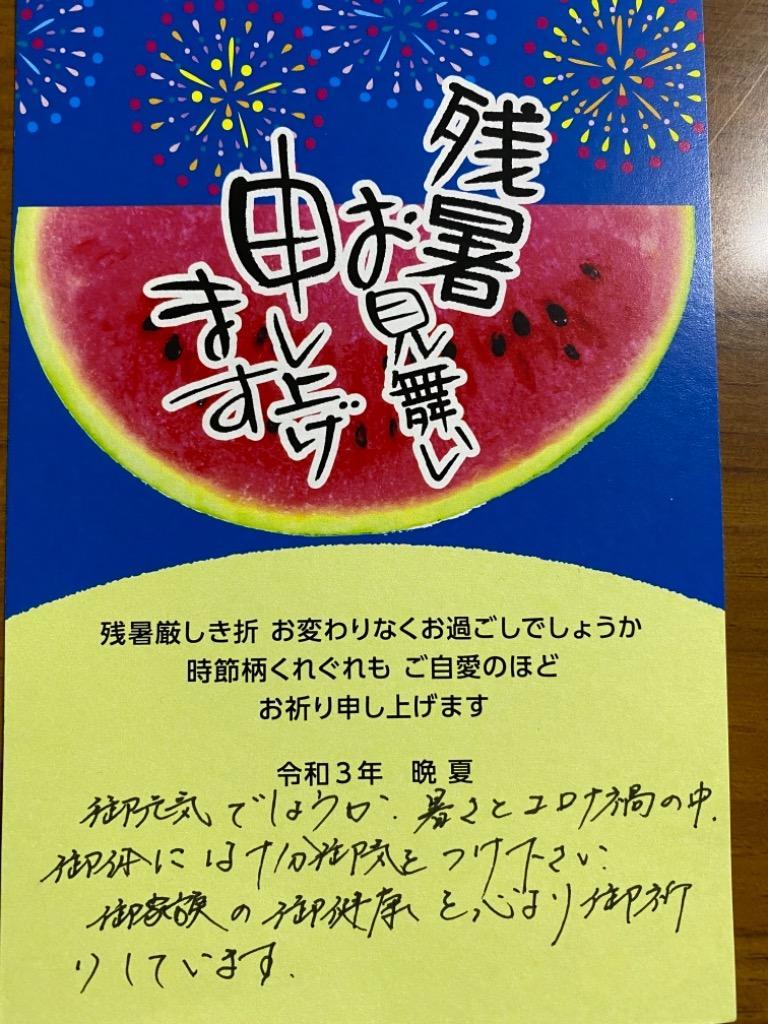 残暑
お見舞い
申し上げ
ます
残暑厳しき折 お変わりなくお過ごしでしょうか
時節柄くれぐれも ご自愛のほど
お祈り申し上げます
令和3年 晩夏
御元気でしょうか、暑さとコロナ禍の中、
御体には十分御気をつけ下さい、
御家族の御健康を心より御祈
りしています.